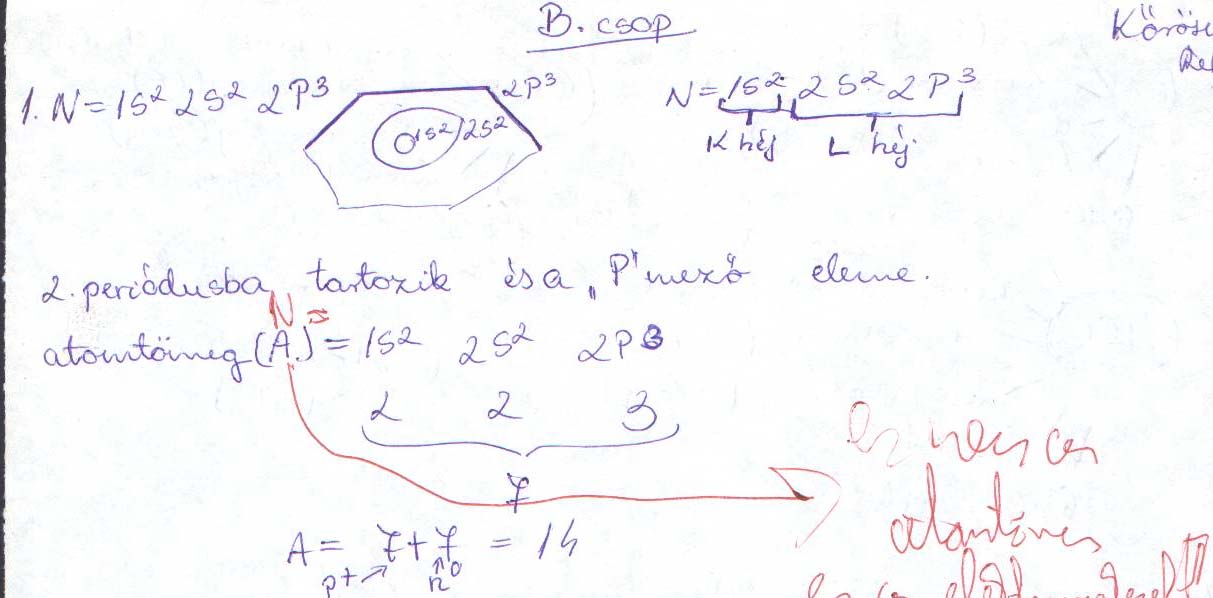 B. csop
Kőrösi
1. N = 1s² 2s² 2p³
2p³
1s² 2s²
N = 1s² 2s² 2p³
K héj L héj
2. periódusba tartozik és a „P" mező eleme.
N =
atomtömeg (A.) = 1s² 2s² 2p³
2 2 3
7
ez nem az
atomtömeg
A = 7 + 7 = 14
p⁺ n⁰
ez az